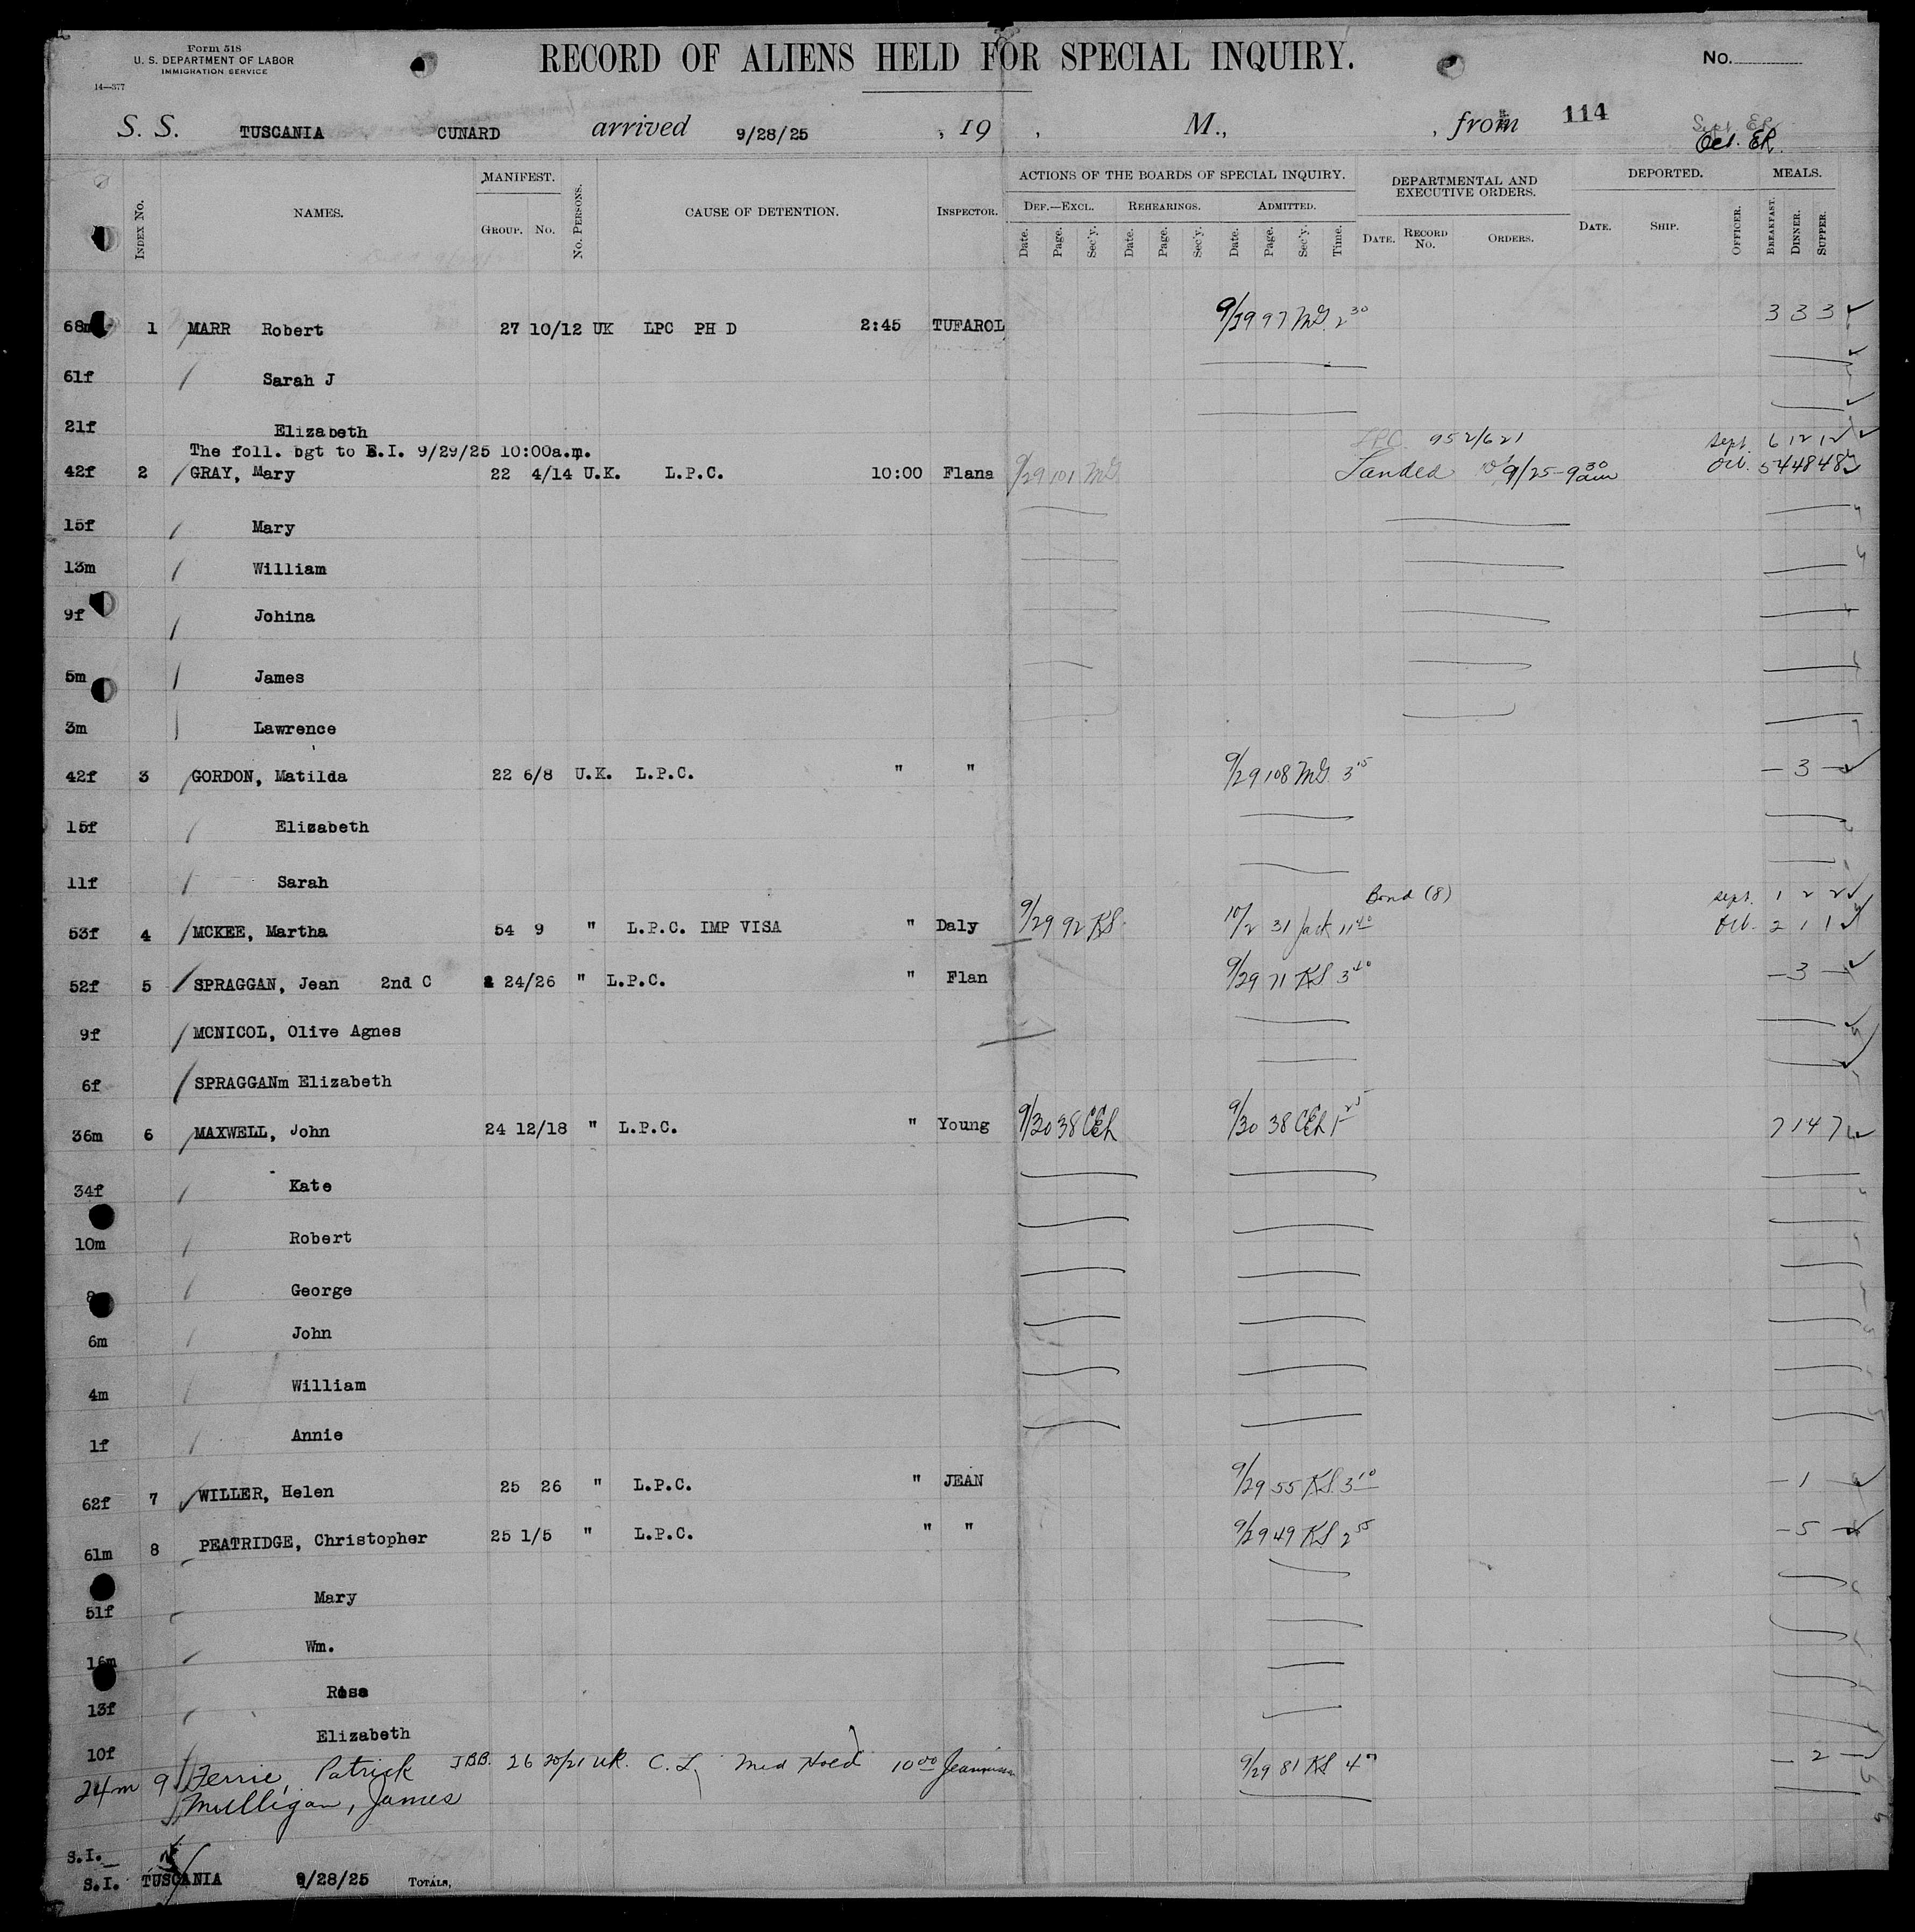 Form 518
U. S. DEPARTMENT OF LABOR
IMMIGRATION SERVICE
14—377
RECORD OF ALIENS HELD FOR SPECIAL INQUIRY.
No.
S. S. TUSCANIA CUNARD arrived 9/28/25 , 19 , M., , from 114
Sept ER
Oct. ER.
INDEX No. NAMES. MANIFEST. GROUP. No. No. PERSONS. CAUSE OF DETENTION. INSPECTOR. ACTIONS OF THE BOARDS OF SPECIAL INQUIRY. DEF.—EXCL. Date. Page. Sec'y. REHEARINGS. Date. Page. Sec'y. ADMITTED. Date. Page. Sec'y. Time. DEPARTMENTAL AND EXECUTIVE ORDERS. DATE. RECORD No. ORDERS. DEPORTED. DATE. SHIP. OFFICER. MEALS. BREAKFAST. DINNER. SUPPER.
68m 1 MARR Robert 27 10/12 UK LPC PH D 2:45 TUFAROL 9/29 97 McG 2 30 3 3 3
61f Sarah J
21f Elizabeth
The foll. bgt to E.I. 9/29/25 10:00a.m. LPC 952/621 Sept 6 12 12
42f 2 GRAY, Mary 22 4/14 U.K. L.P.C. 10:00 Flana 9/29 101 McG Landed 10/9/25 - 9 30 am Oct. 54 48 48
15f Mary
13m William
9f Johina
5m James
3m Lawrence
42f 3 GORDON, Matilda 22 6/8 U.K. L.P.C. " " 9/29 108 McG 3 15 — 3 —
15f Elizabeth
11f Sarah
Bond (8) Sept. 1 2 2
53f 4 MCKEE, Martha 54 9 " L.P.C. IMP VISA " Daly 9/29 92 KS 10/2 31 Jack 11 40 Oct. 2 1 1
52f 5 SPRAGGAN, Jean 2nd C 24/26 " L.P.C. " Flan 9/29 71 KS 3 40 — 3 —
9f MCNICOL, Olive Agnes
6f SPRAGGANm Elizabeth
36m 6 MAXWELL, John 24 12/18 " L.P.C. " Young 9/30 38 CEh 9/30 38 CEh 1 25 7 14 7
34f Kate
10m Robert
8 George
6m John
4m William
1f Annie
62f 7 WILLER, Helen 25 26 " L.P.C. " JEAN 9/29 55 KS 3 10 — 1 —
61m 8 PEATRIDGE, Christopher 25 1/5 " L.P.C. " " 9/29 49 KS 2 55 — 5 —
51f Mary
16m Wm.
13f Rose
10f Elizabeth
24m 9 Ferrie, Patrick 26 20/21 UK. C. L. Med Hold 10 00 9/29 81 KS — 2 —
Mulligan, James
S.I.
S.I. TUSCANIA 9/28/25 TOTALS,